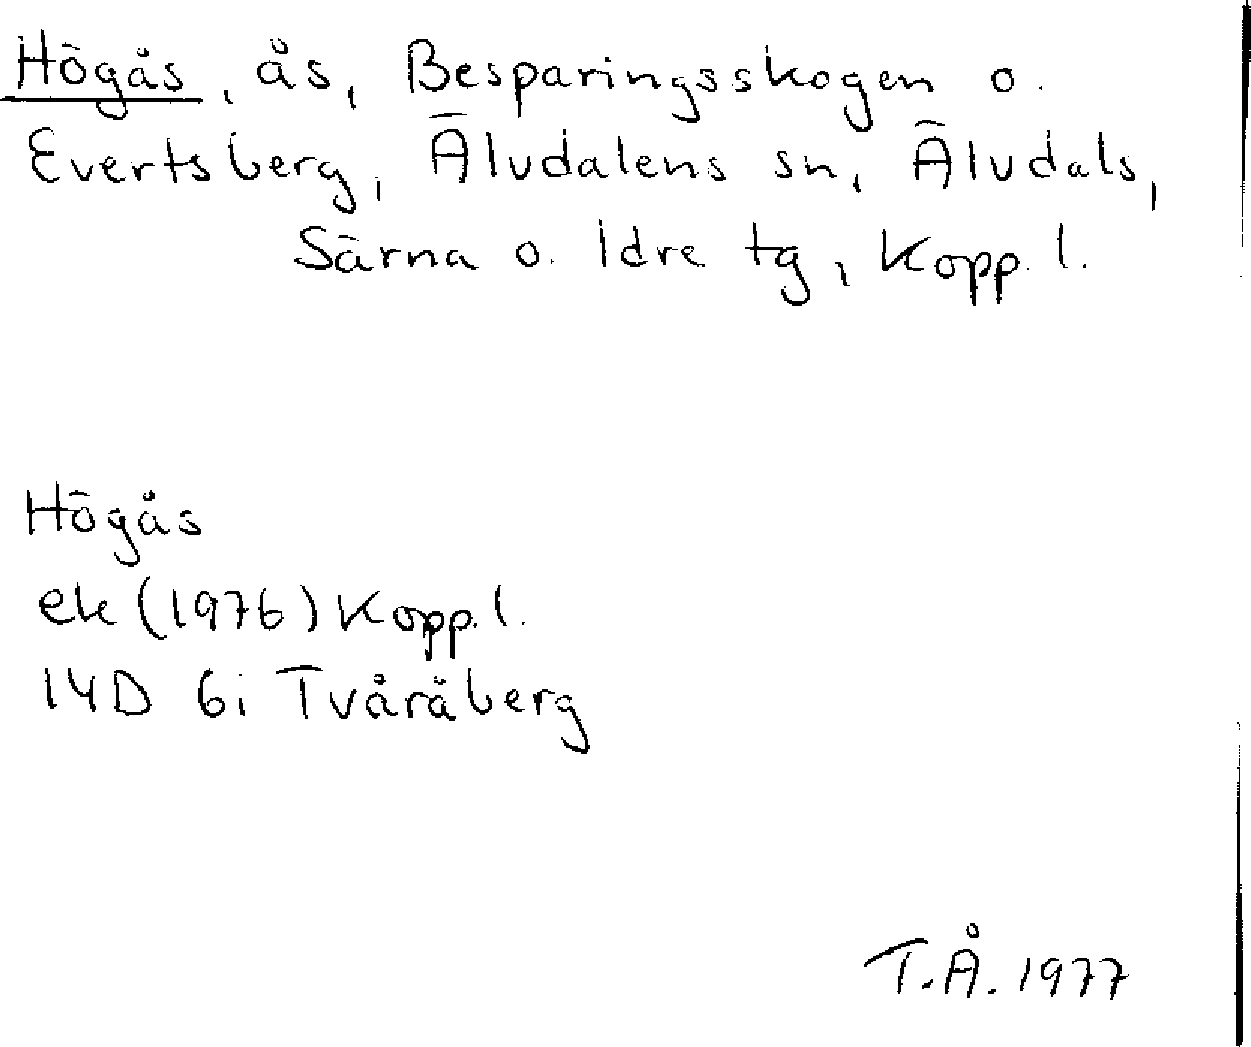 Högås, ås, Besparingsskogen o.
Evertsberg, Älvdalens sn, Älvdals,
Särna o. Idre tg, Kopp. l.
Högås
ek (1976) Kopp. l.
14D 6i Tvåråberg
T.Å. 1977